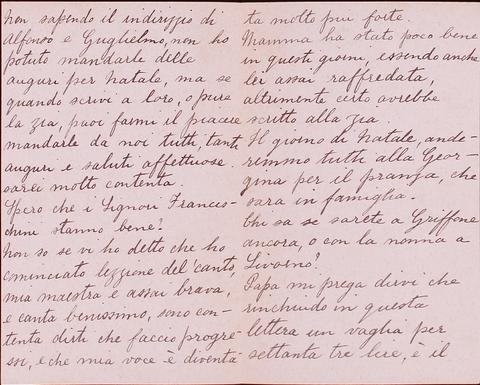 non sapendo il indirizzio di
Alfonso e Guglielmo, non ho
potuto mandarle delle
auguri per Natale, ma se
quando scrivi a loro, o pure
la zia, puoi farmi il piacere
mandarle da noi tutti, tanti
auguri e saluti affettuose.
sarei molto contenta.
Spero che i Signori Frances-
chini stanno bene?
Non so se vi ho detto che ho
cominciato lezzione del canto,
mia maestra e assai brava,
e canta benissimo, sono con-
tenta dirti che faccio progre-
ssi, e che mia voce è diventa
ta molto piu forte.
Mamma ha stato poco bene
in questi giorni, essendo anche
lei assai raffredata,
altrimente certo avrebbe
scritto alla zia.
Il giorno di Natale, ande-
remmo tutti alla Geor-
gina per il pranza, che
sara in famiglia.
Chi sa se sarete a Griffone
ancora, o con la nonna a
Livorno?
Papa mi prega dirvi che
rinchiudo in questa
lettera un vaglia per
settanta tre lire, è il